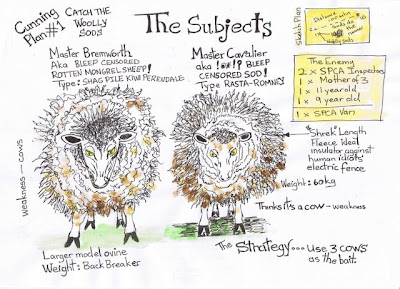 Cunning Plan #1
CATCH THE
WOOLLY
SODS
The Subjects
Master Bremworth
Aka BLEEP CENSORED
ROTTEN MONGREL SHEEP!
Type: SHAG PILE KIWI PERENDALE
Master Cavalier
aka !@*!? BLEEP
CENSORED SOD!
Type RASTA-ROMNEY
Sketch Plan
The Enemy
2 x SPCA Inspectors
1 x Mother of 2
1 x 11 year old
1 x 9 year old
1 x SPCA Van
"Shrek" Length
Fleece. Ideal
insulator against
human idiots'
electric fence
Weight: 60kg
Thinks it's a cow - weakness
weakness - cows
Larger model ovine
Weight: Back Breaker
The Strategy... Use 3 cows
as the bait.